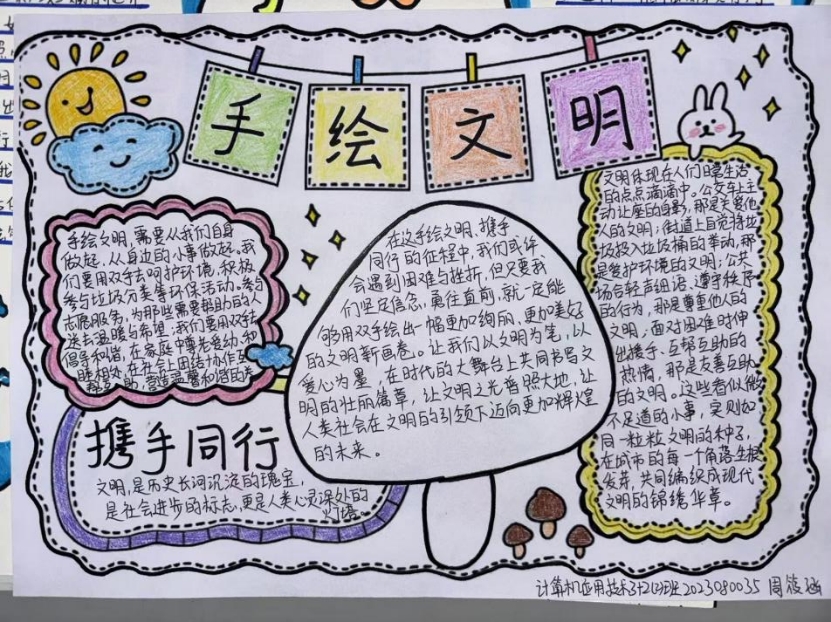 手绘文明
手绘文明,需要从我们自身
做起,从身边的小事做起。我
们要用双手去呵护环境,积极
参与垃圾分类等环保活动。参与
志愿服务,为那些需要帮助的人
送去温暖与希望;我们要用双手去
倡导和谐,在家庭中尊老爱幼,和
睦相处,在社会上团结协作互
帮互助,营造温馨和谐的
在这手绘文明、携手
同行的征程中,我们或许
会遇到困难与挫折,但只要我
们坚定信念,勇往直前,就一定能
够用双手绘出一幅更加绚丽、更加美好
的文明新画卷。让我们以文明为笔,以
爱心为墨,在时代的大舞台上共同书写文
明的壮丽篇章,让文明之光普照大地,让
人类社会在文明的引领下迈向更加辉煌
的未来。
文明体现在人们日常生活
的点点滴滴中。公交车上主
动让座的身影,那是关爱他
人的文明;街道上自觉将垃
圾投入垃圾桶的举动,那
是爱护环境的文明;公共
场合轻声细语、遵守秩序
的行为,那是尊重他人的
文明,面对困难时伸
出援手、互帮互助的
热情,那是友善互助
的文明。这些看似微
不足道的小事,实则如
同一粒粒文明的种子,
在城市的每一个角落生根
发芽,共同编织成现代
文明的锦绣华章。
携手同行
文明,是历史长河沉淀的瑰宝,
是社会进步的标志,更是人类心灵深处的
灯塔
计算机应用技术3+2(2)班 2023080035 周筱涵